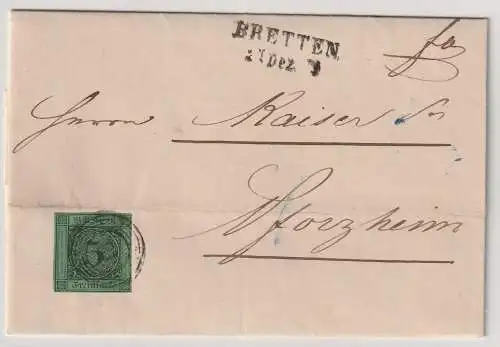 BRETTEN.
Dez.
Herrn Kaiser
Pforzheim
3
Freimarke